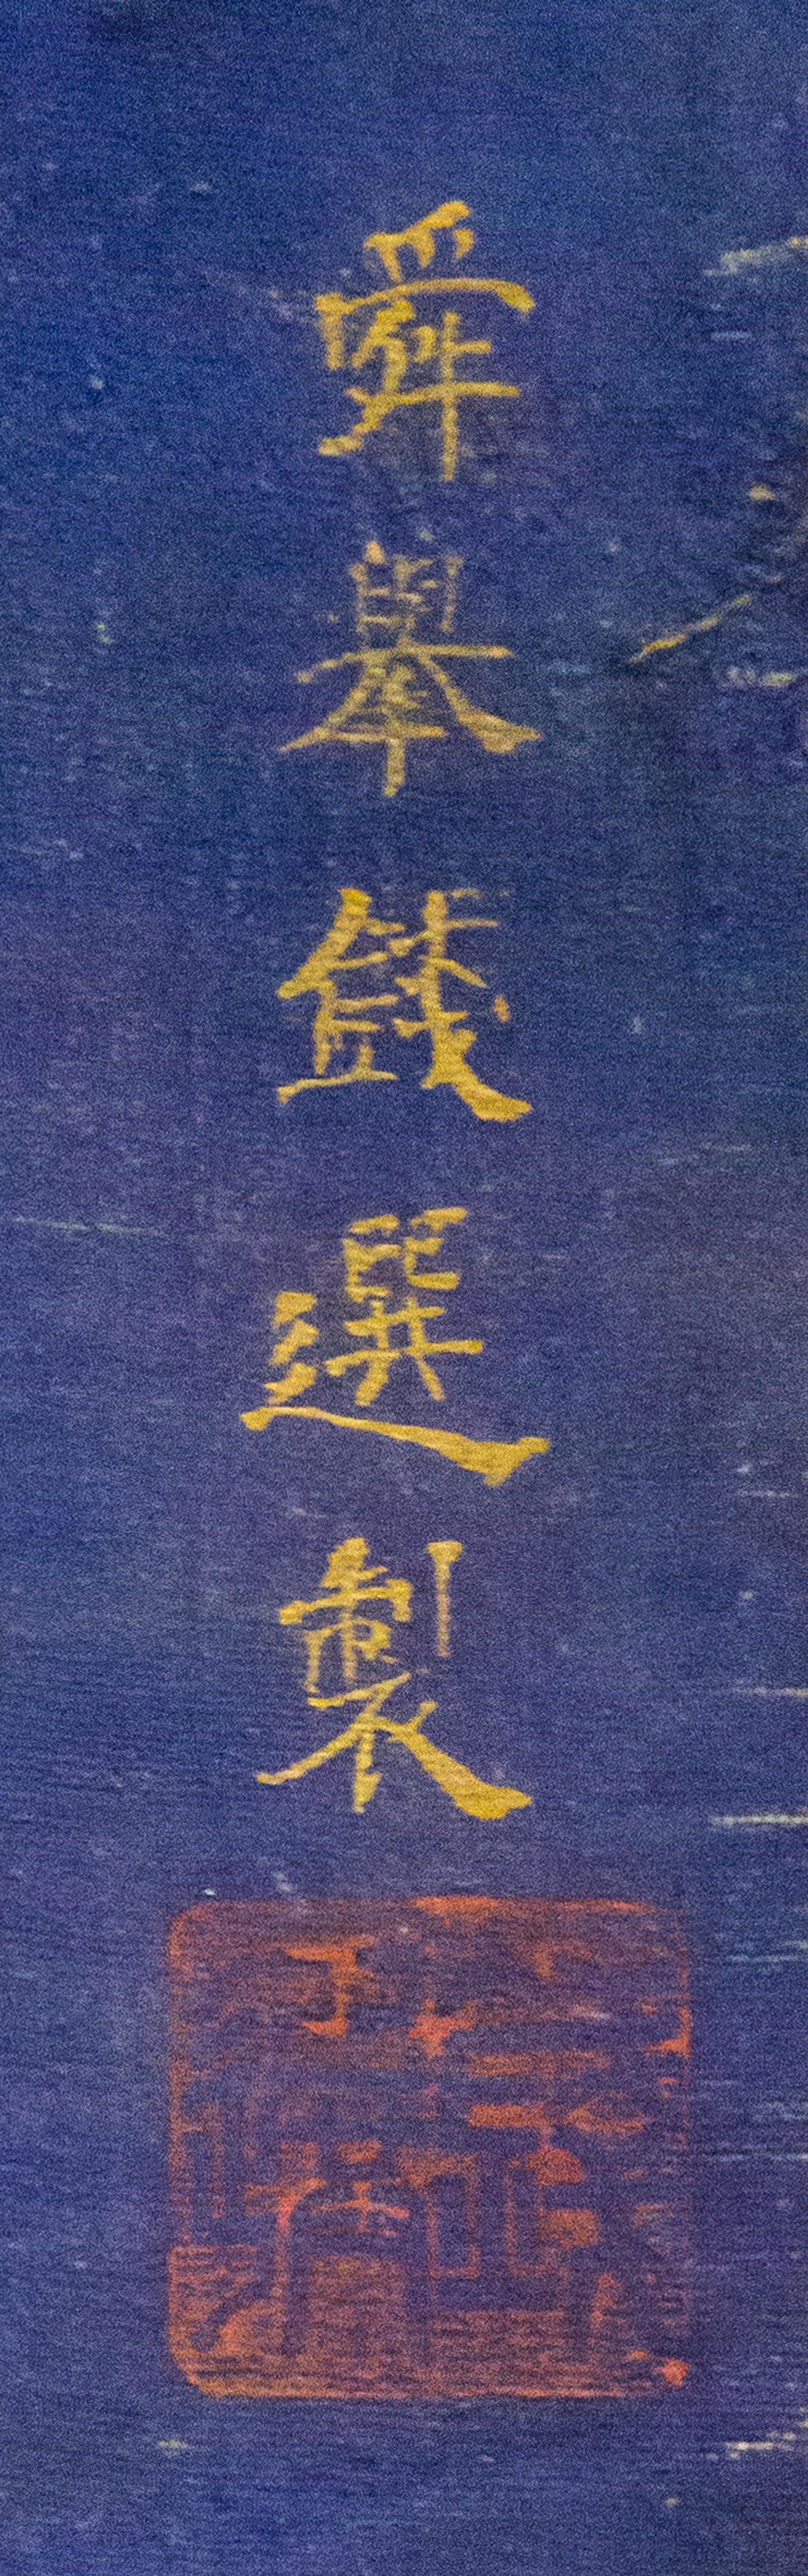 舜舉錢選製